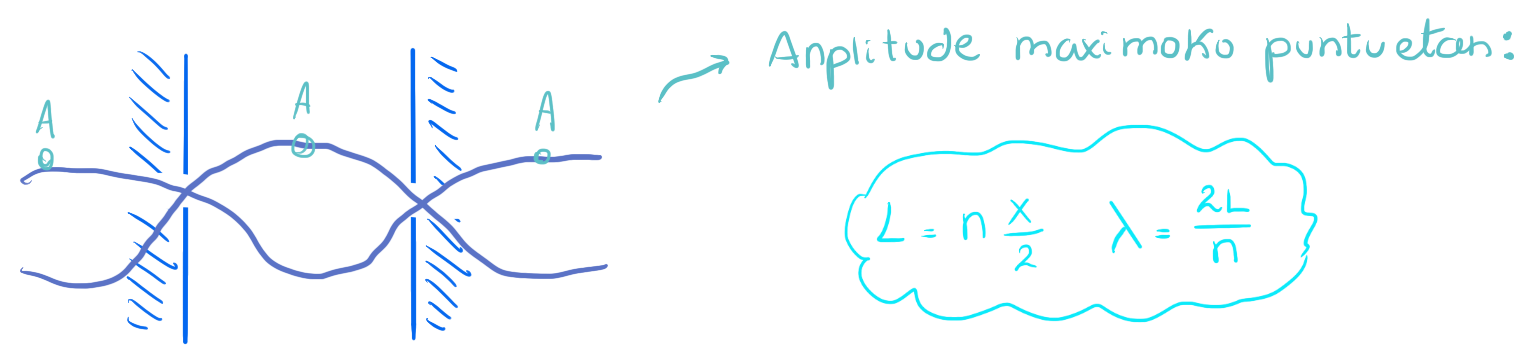 Anplitude maximoko puntuetan:
A
A
A
L = n x/2 λ = 2L/n